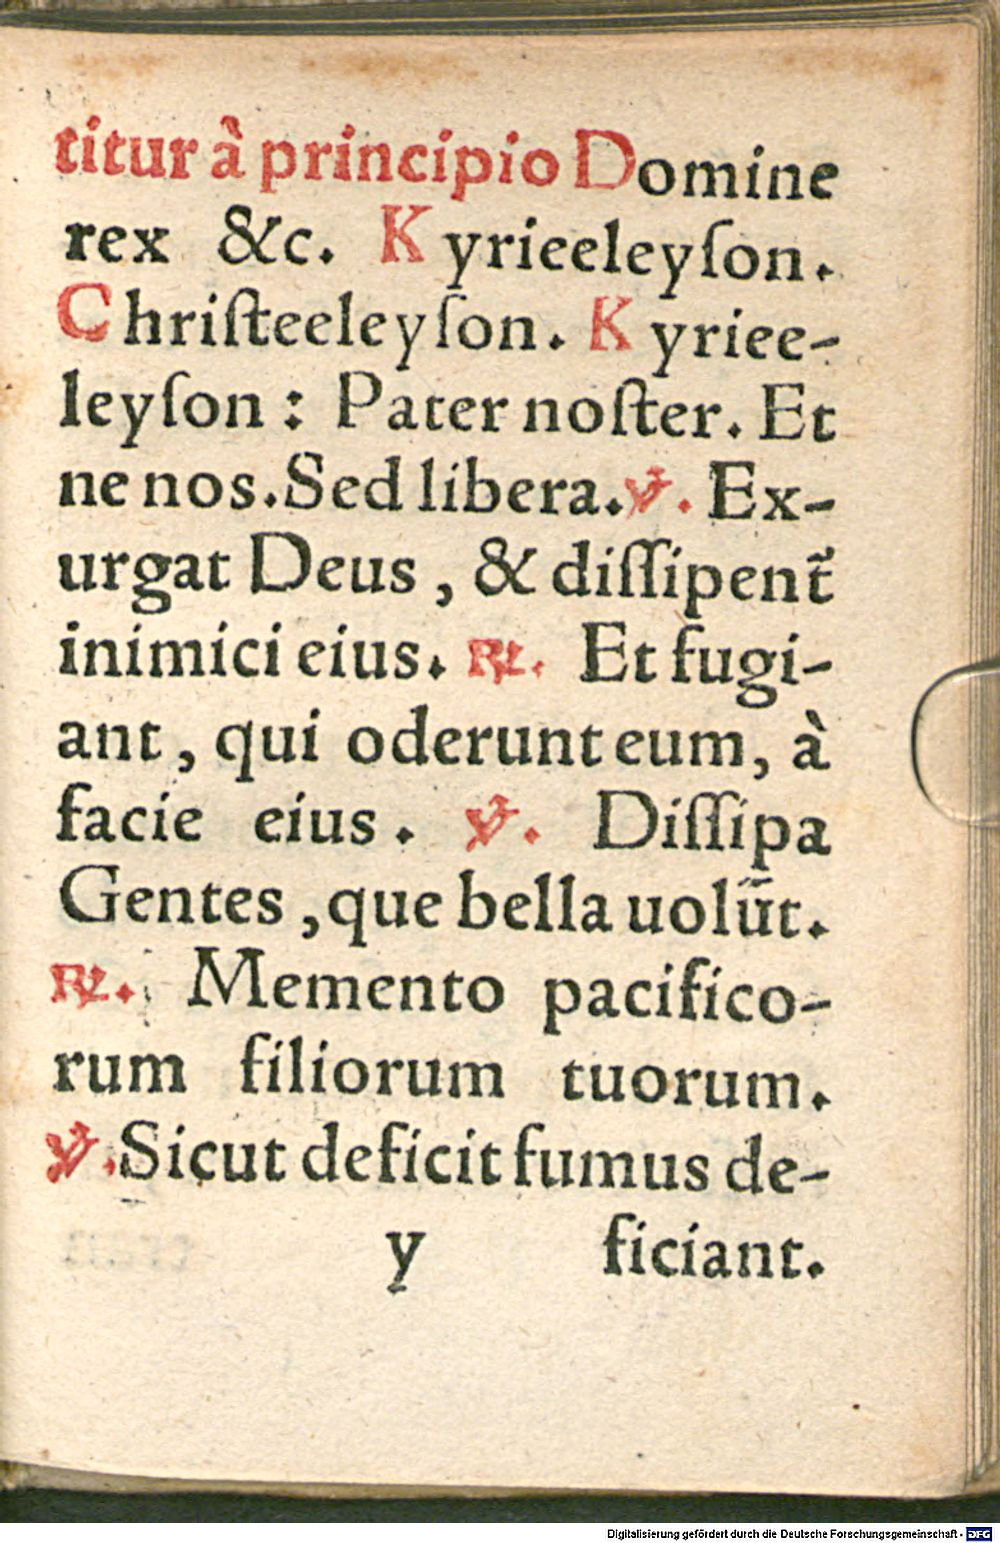 titur à principio Domine
rex &c. Kyrieeleyſon.
Chriſteeleyſon. Kyriee-
leyſon: Pater noſter. Et
ne nos. Sed libera. ℣. Ex-
urgat Deus, & diſſipent̃
inimici eius. ℟. Et fugi-
ant, qui oderunt eum, à
facie eius. ℣. Diſſipa
Gentes, que bella uolũt.
℟. Memento pacifico-
rum filiorum tuorum.
℣. Sicut deficit fumus de-
y ficiant.
Digitalisierung gefördert durch die Deutsche Forschungsgemeinschaft - DFG